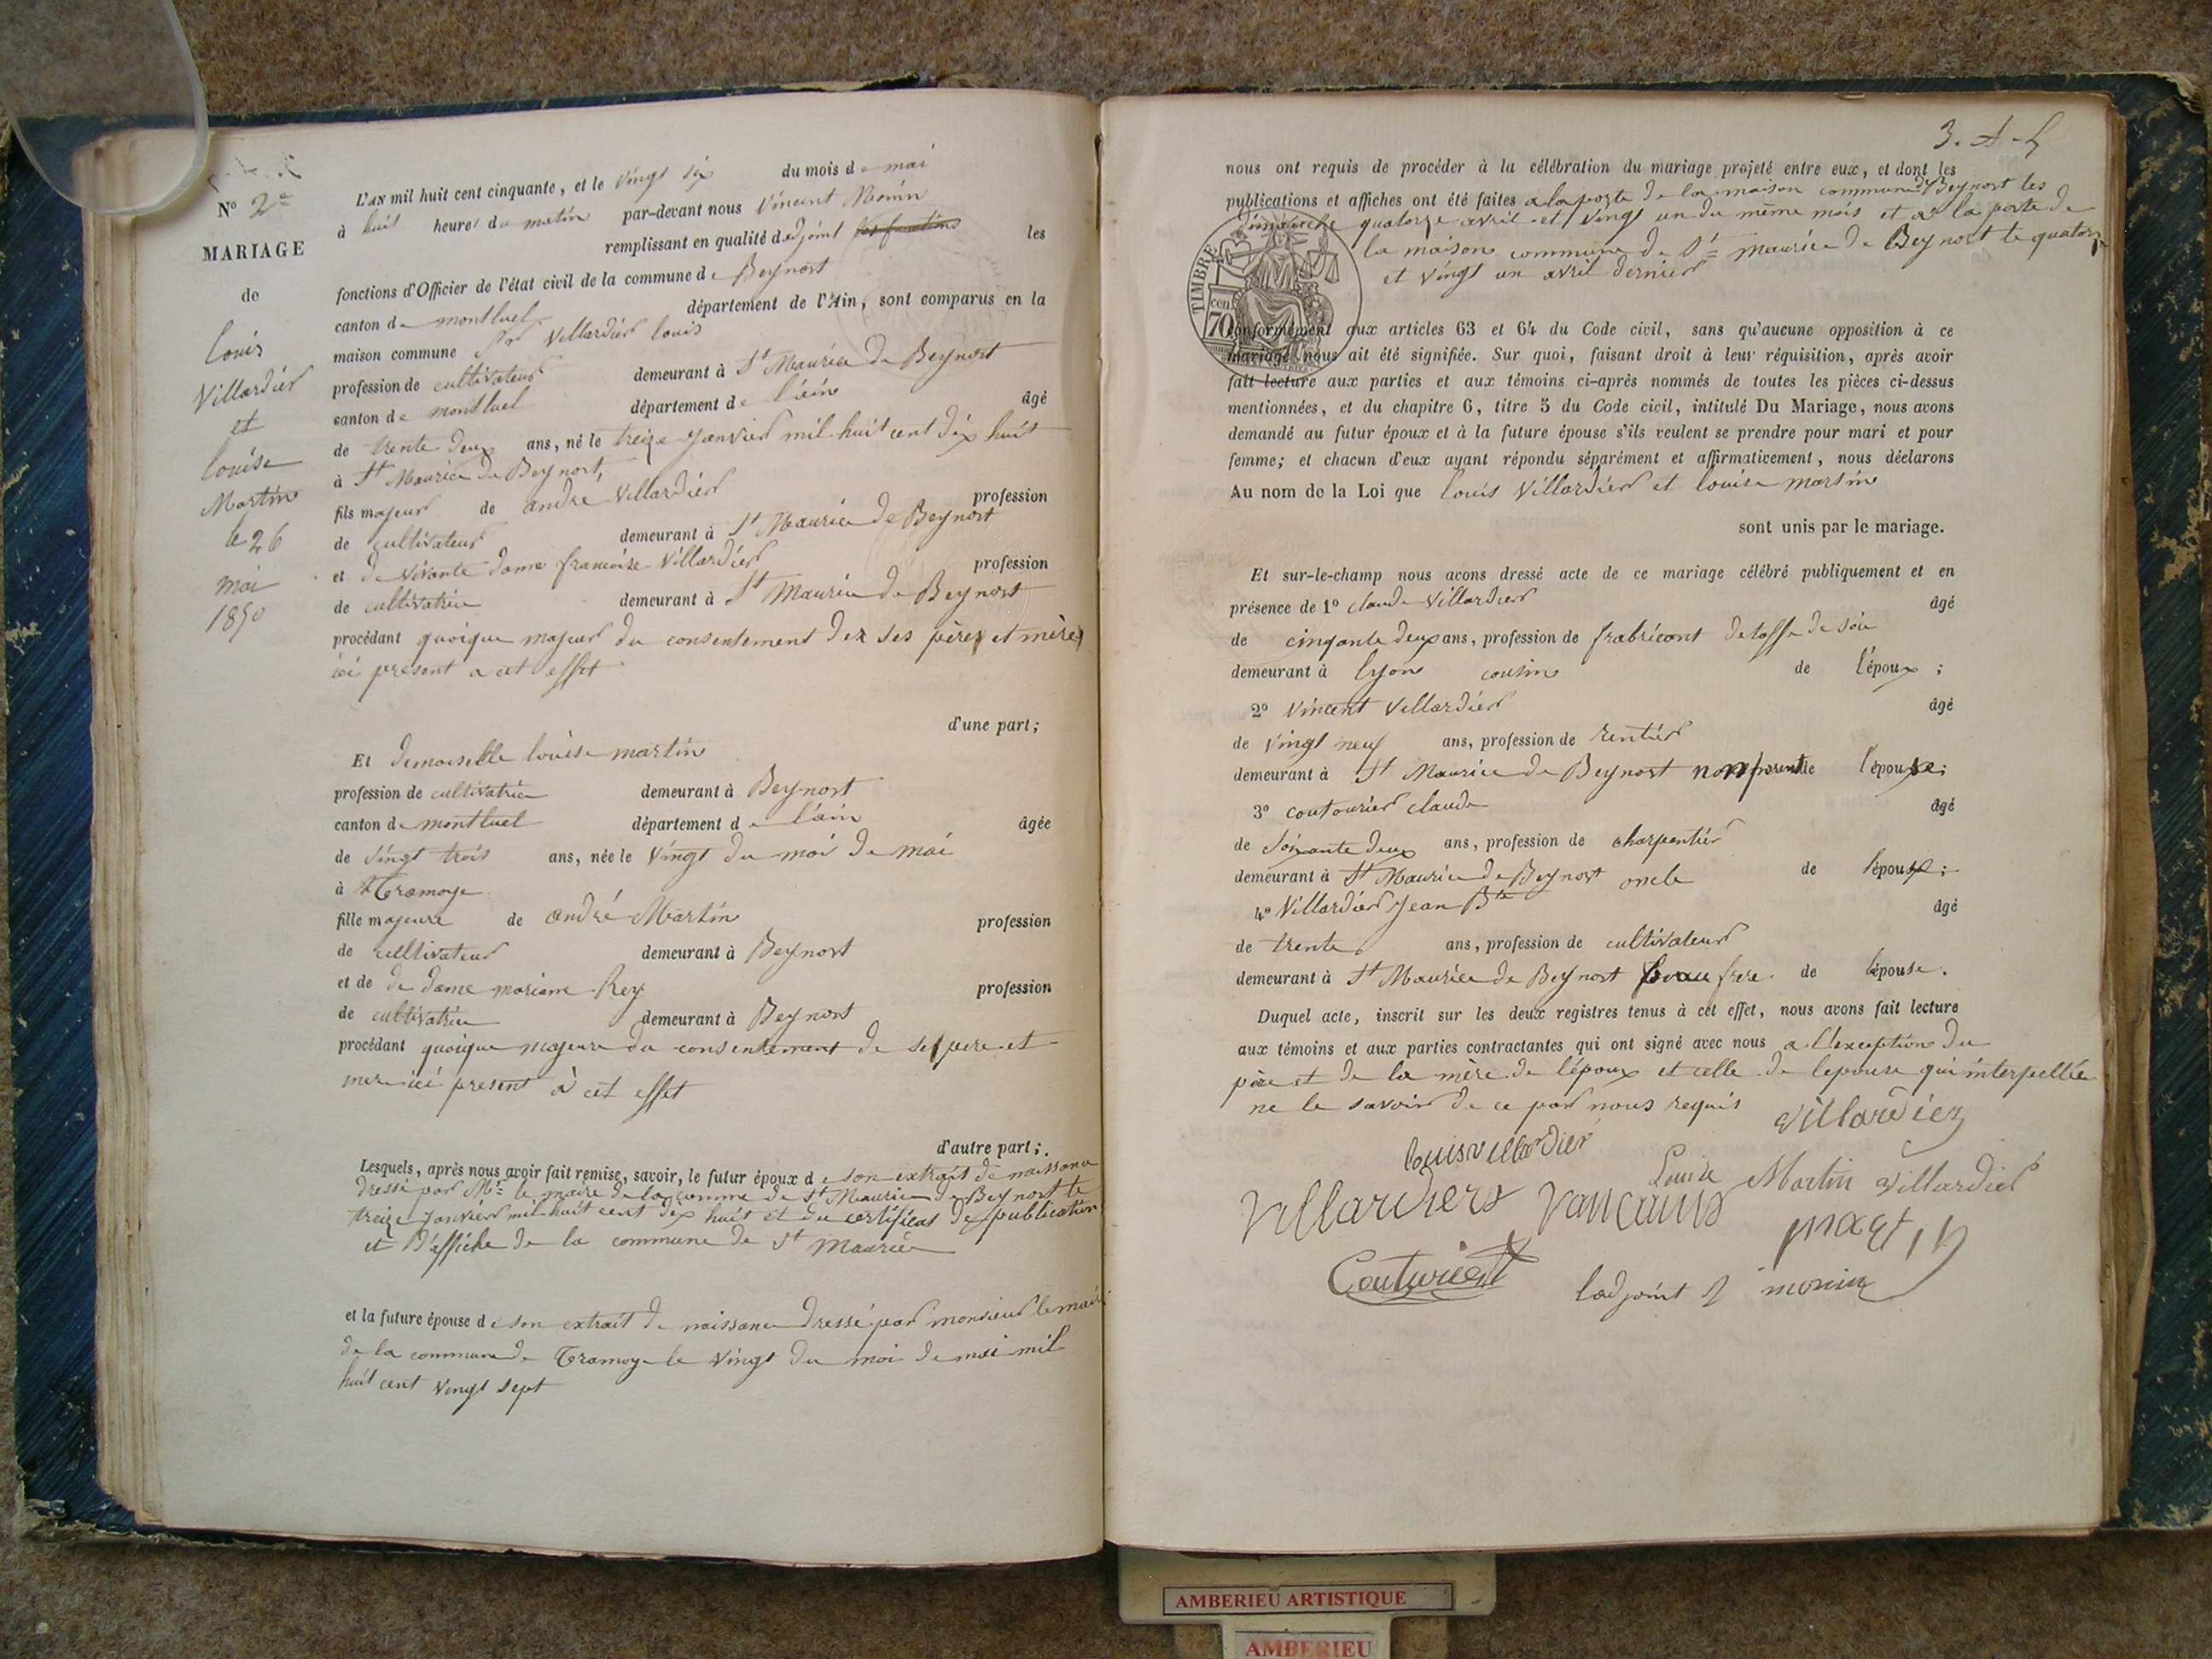 Nº 2e
MARIAGE
de
Louis
Villardier
et
Louise
Martin
le 26
mai
1850
L'AN mil huit cent cinquante, et le vingt six du mois de mai
à huit heures du matin par-devant nous Vincent Monin
remplissant en qualité d'adjoint les
fonctions d'Officier de l'état civil de la commune de Beynost
canton de montluel département de l'Ain, sont comparus en la
maison commune Sr Villardier louis
profession de cultivateur demeurant à St Maurice de Beynost
canton de montluel département de l'ain âgé
de trente deux ans, né le treize janvier mil huit cent dix huit
à St Maurice de Beynost,
fils majeur de andré Villardier profession
de cultivateur demeurant à St Maurice de Beynost
et de vivante dame francoise Villardier profession
de cultivatrice demeurant à St Maurice de Beynost
procédant quoique majeur du consentement de ses pères et mères
ici présent a cet effet
d'une part;
Et demoiselle louise martin
profession de cultivatrice demeurant à Beynost
canton de montluel département de l'ain âgée
de vingt trois ans, née le vingt du moi de mai
à Tramoye
fille majeure de andré Martin profession
de cultivateur demeurant à Beynost
et de de dame mariane Rey profession
de cultivatrice demeurant à Beynost
procédant quoique majeure du consentement de ses pere et
mere ici present à cet effet
d'autre part;
Lesquels, après nous avoir fait remise, savoir, le futur époux de son extrait de naissance
dressé par Mr le maire de la comme de St Maurice de Beynost le
treize janvier mil huit cent dix huit et du certificat de publication
et d'affiche de la commune de St Maurice
et la future épouse de son extrait de naissance dressé par monsieur le maire
de la commune de Tramoye le vingt du moi de mai mil
huit cent vingt sept
nous ont requis de procéder à la célébration du mariage projeté entre eux, et dont les
publications et affiches ont été faites a la porte de la maison commune de Beynost les
dimanche quatorze avril et vingt un du même mois et a la porte de
la maison commune de St maurice de Beynost le quatorze
et vingt un avril dernier
TIMBRE
cen
70
conformément aux articles 63 et 64 du Code civil, sans qu'aucune opposition à ce
mariage nous ait été signifiée. Sur quoi, faisant droit à leur réquisition, après avoir
fait lecture aux parties et aux témoins ci-après nommés de toutes les pièces ci-dessus
mentionnées, et du chapitre 6, titre 5 du Code civil, intitulé Du Mariage, nous avons
demandé au futur époux et à la future épouse s'ils veulent se prendre pour mari et pour
femme; et chacun d'eux ayant répondu séparément et affirmativement, nous déclarons
Au nom de la Loi que Louis Villardier et louise martin
sont unis par le mariage.
Et sur-le-champ nous avons dressé acte de ce mariage célébré publiquement et en
présence de 1º claude Villardier âgé
de cinqante deux ans, profession de frabricant detoffe de soie
demeurant à lyon cousin de l'époux;
2º Vincent Villardier âgé
de vingt neuf ans, profession de rentier
demeurant à St Maurice de Beynost non parent de l'épouse;
3º coutourier claude âgé
de soixante deux ans, profession de charpentier
demeurant à St Maurice de Beynost oncle de l'épouse;
4º Villardier Jean Bte âgé
de trente ans, profession de cultivateur
demeurant à St Maurice de Beynost beau frere de lépouse.
Duquel acte, inscrit sur les deux registres tenus à cet effet, nous avons fait lecture
aux témoins et aux parties contractantes qui ont signé avec nous a l'exception du
père et de la mère de l'époux et celle de lepouse qui interpellée
ne le savoir de ce par nous requis
Villardier
louis villardier
Louise Martin Villardier
Villardiers
martin
Couturier
ladjoint monin
AMBERIEU ARTISTIQUE
AMBERIEU